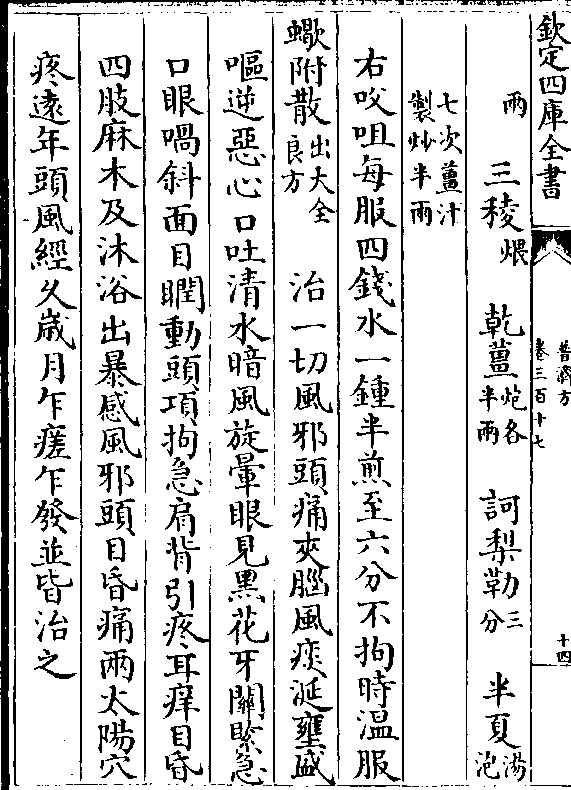 欽定四庫全書
普濟方
卷三百十七
十四
兩 三稜煨 乾薑炮各半兩 訶梨勒三分 半夏湯泡
七次薑汁製炒半兩
右㕮咀每服四錢水一鍾半煎至六分不拘時溫服
蠍附散出大全良方 治一切風邪頭痛夾腦風痰涎壅盛
嘔逆惡心口吐清水暗風旋暈眼見黑花牙關緊急
口眼喎斜面目瞤動頭項拘急肩背引疼耳痒目昏
四肢麻木及沐浴出暴感風邪頭目昏痛兩太陽穴
疼遠年頭風經乆歲月乍瘥乍發並皆治之